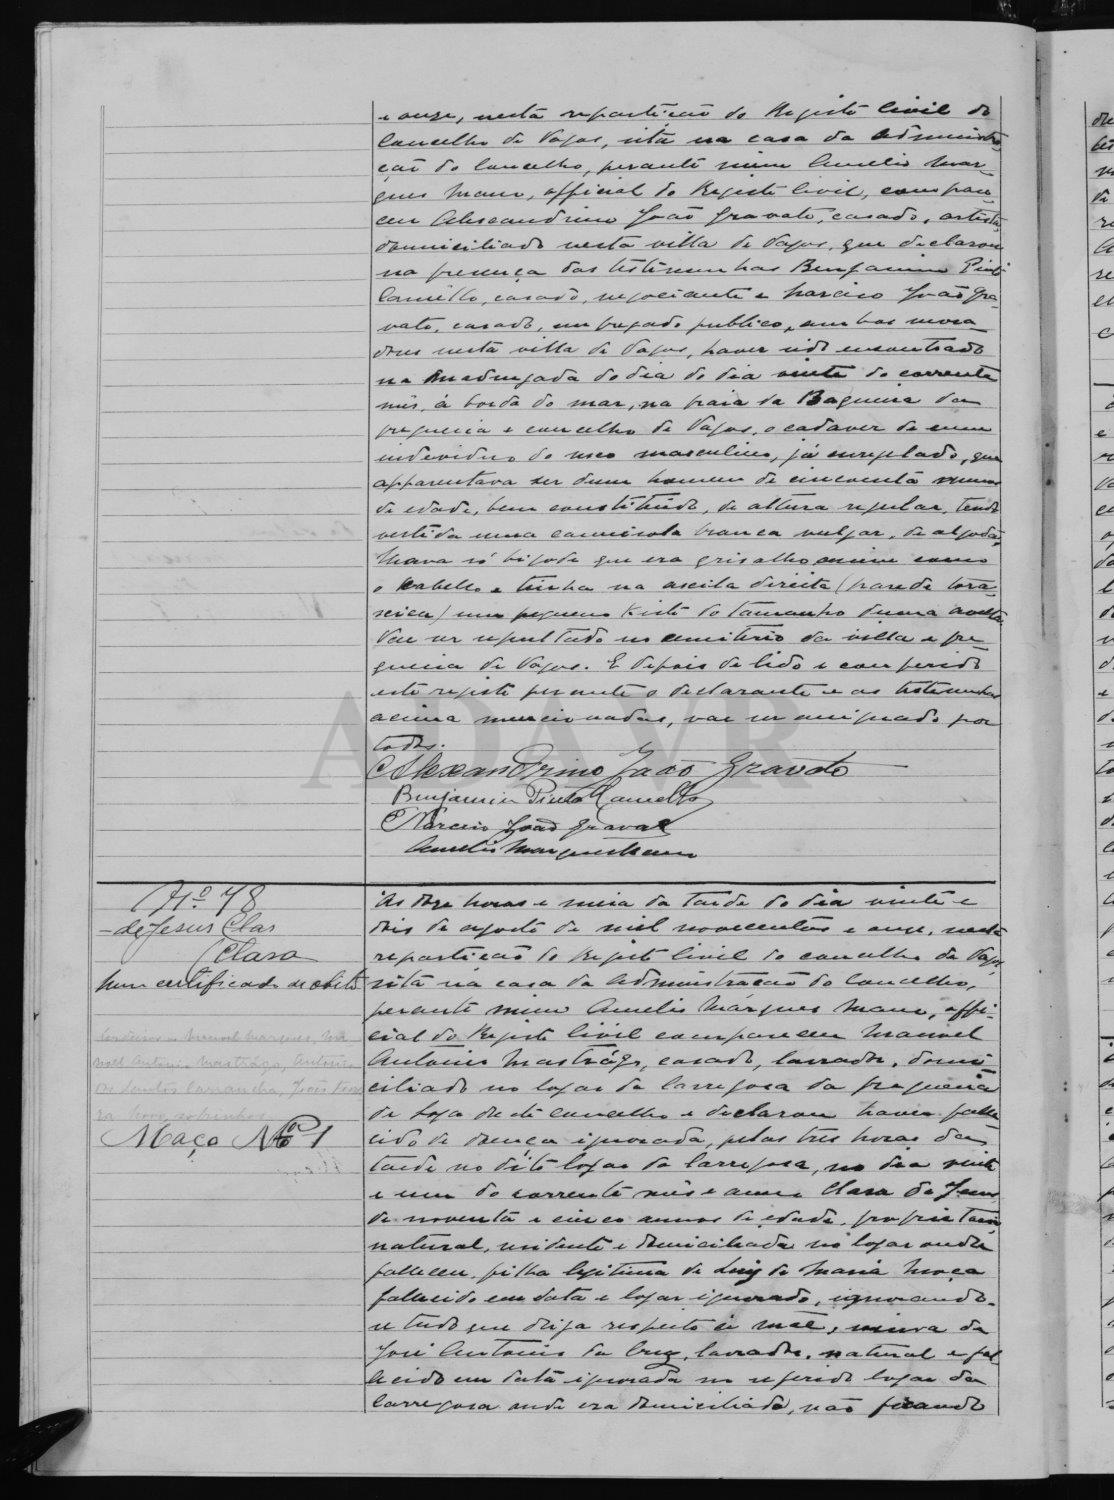 e onze, nesta repartição do Registo Civil do
Concelho de Vagos, sita na casa da Administra-
ção do Concelho, perante mim Aurelio Mar-
ques Mano, official do Registo Civil, compare-
ceu Alexandrino João Gravato, casado, artista,
domiciliado nesta villa de Vagos, que declarou
na presença das testemunhas Benjamim Pinto
Camello, casado, negociante e Narciso João Gra-
vato, casado, empregado publico, ambos mora-
dores nesta villa de Vagos, haver sido encontrado
na madrugada do dia do dia vinte do corrente
mês, á borda do mar, na praia da Bagueira da
freguezia e concelho de Vagos, o cadaver de um
individuo do sexo masculino, já enregelado, que
apparentava ser dum homem de cincoenta annos
de edade, bem constituido, de altura regular, tendo
vestida uma camisola branca vulgar, de algodão,
Usava só bigode que era grisalho assim como
o cabello e tinha na direita (parede tora-
scica) um pequeno kisto do tamanho duma avelã.
Vae ser sepultado no cemiterio da villa e fre-
guezia de Vagos. E depois de lido e conferido
este registo perante o declarante e as testemunhas
acima mencionadas, vae ser assignado por
todos.
Alexandrino João Gravato
Benjamim Pinto Camello
Narciso João Gravato
Aurelio Marques Mano
N.º 78
de Jesus Clar
Clara
Num certificado de obito
Manoel Marques, Ma
noel Antonio Mastrágo, Antonio
dos Santos
Maço Nº 1
Ás doze horas e meia da tarde do dia vinte e
dois de agosto de mil novecentos e onze, nesta
repartição do Registo Civil do concelho de Vagos,
sita na casa da Administração do Concelho,
perante mim Aurelio Marques Mano, offi-
cial do Registo Civil compareceu Manoel
Antonio Mastrágo, casado, lavrador, domi-
ciliado no logar da Carregosa da freguezia
de Soza deste concelho e declarou haver falle-
cido de doença ignorada, pelas tres horas da
tarde no dito logar da Carregosa, no dia vinte
e um do corrente mês e anno Clara de Jesus,
de noventa e cinco annos de edade, proprietaria,
natural, residente e domiciliada no logar onde
falleceu, filha legitima de Luiz de Maria Moça
fallecido em data e logar ignorado, ignorando-
se tudo que diga respeito á mãe, viuva de
José Antonio da Cruz, lavrador, natural e fal-
lecido em data ignorada no referido logar da
Carregosa onde era domiciliado, não ficando
ADAVR